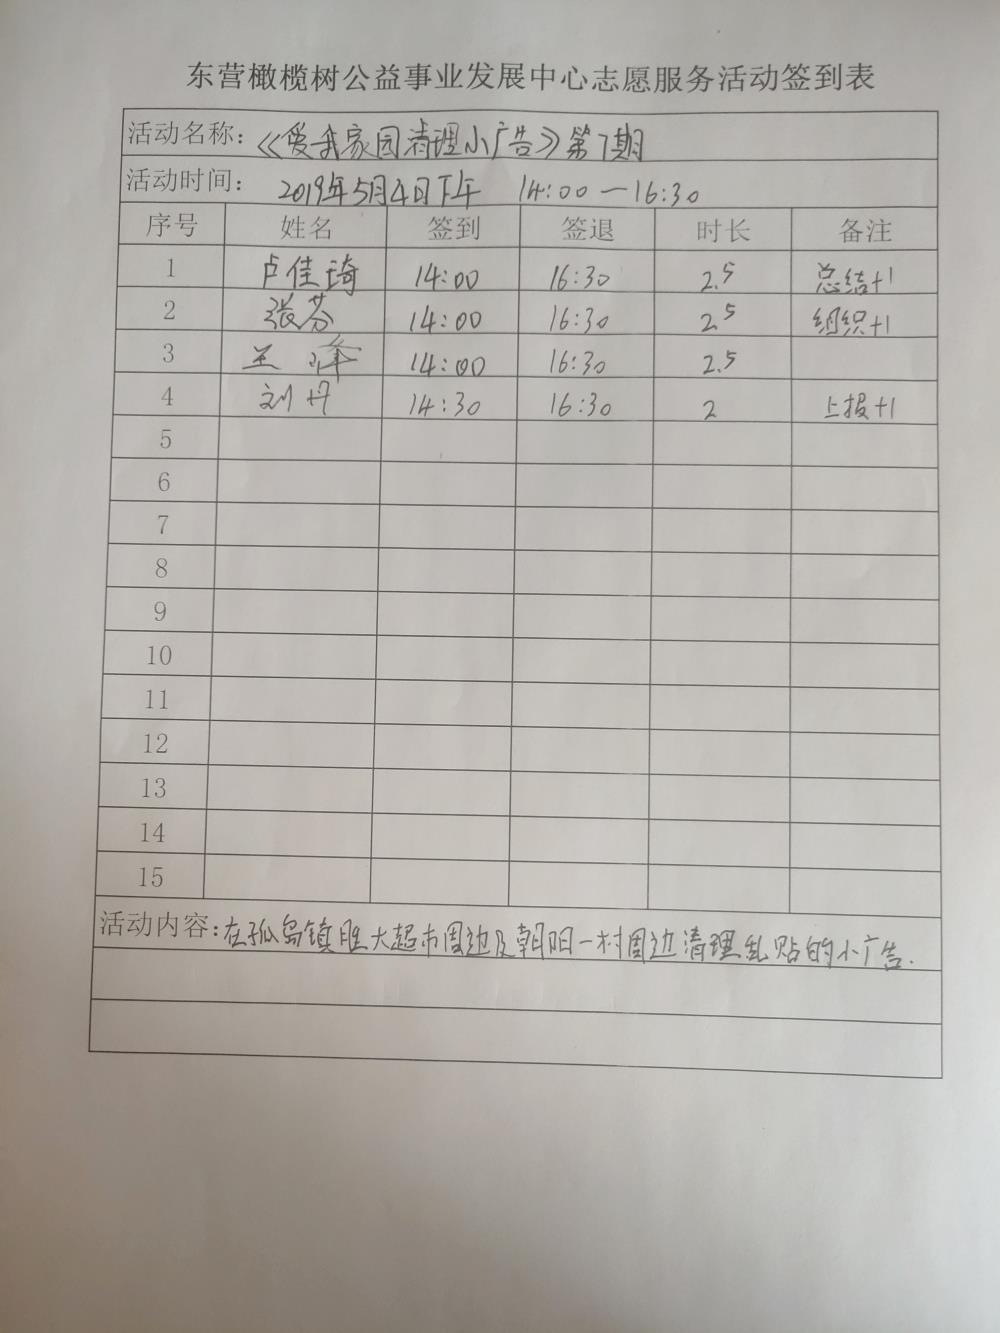 东营橄榄树公益事业发展中心志愿服务活动签到表
活动名称：《爱我家园清理小广告》第7期
活动时间： 2019年5月4日下午 14:00—16:30
序号 姓名 签到 签退 时长 备注
1 卢佳琦 14:00 16:30 2.5 总结+1
2 张芬 14:00 16:30 2.5 组织+1
3 王峰 14:00 16:30 2.5
4 刘丹 14:30 16:30 2 上报+1
5
6
7
8
9
10
11
12
13
14
15
活动内容：在孤岛镇胜大超市周边及朝阳一村周边清理乱贴的小广告.